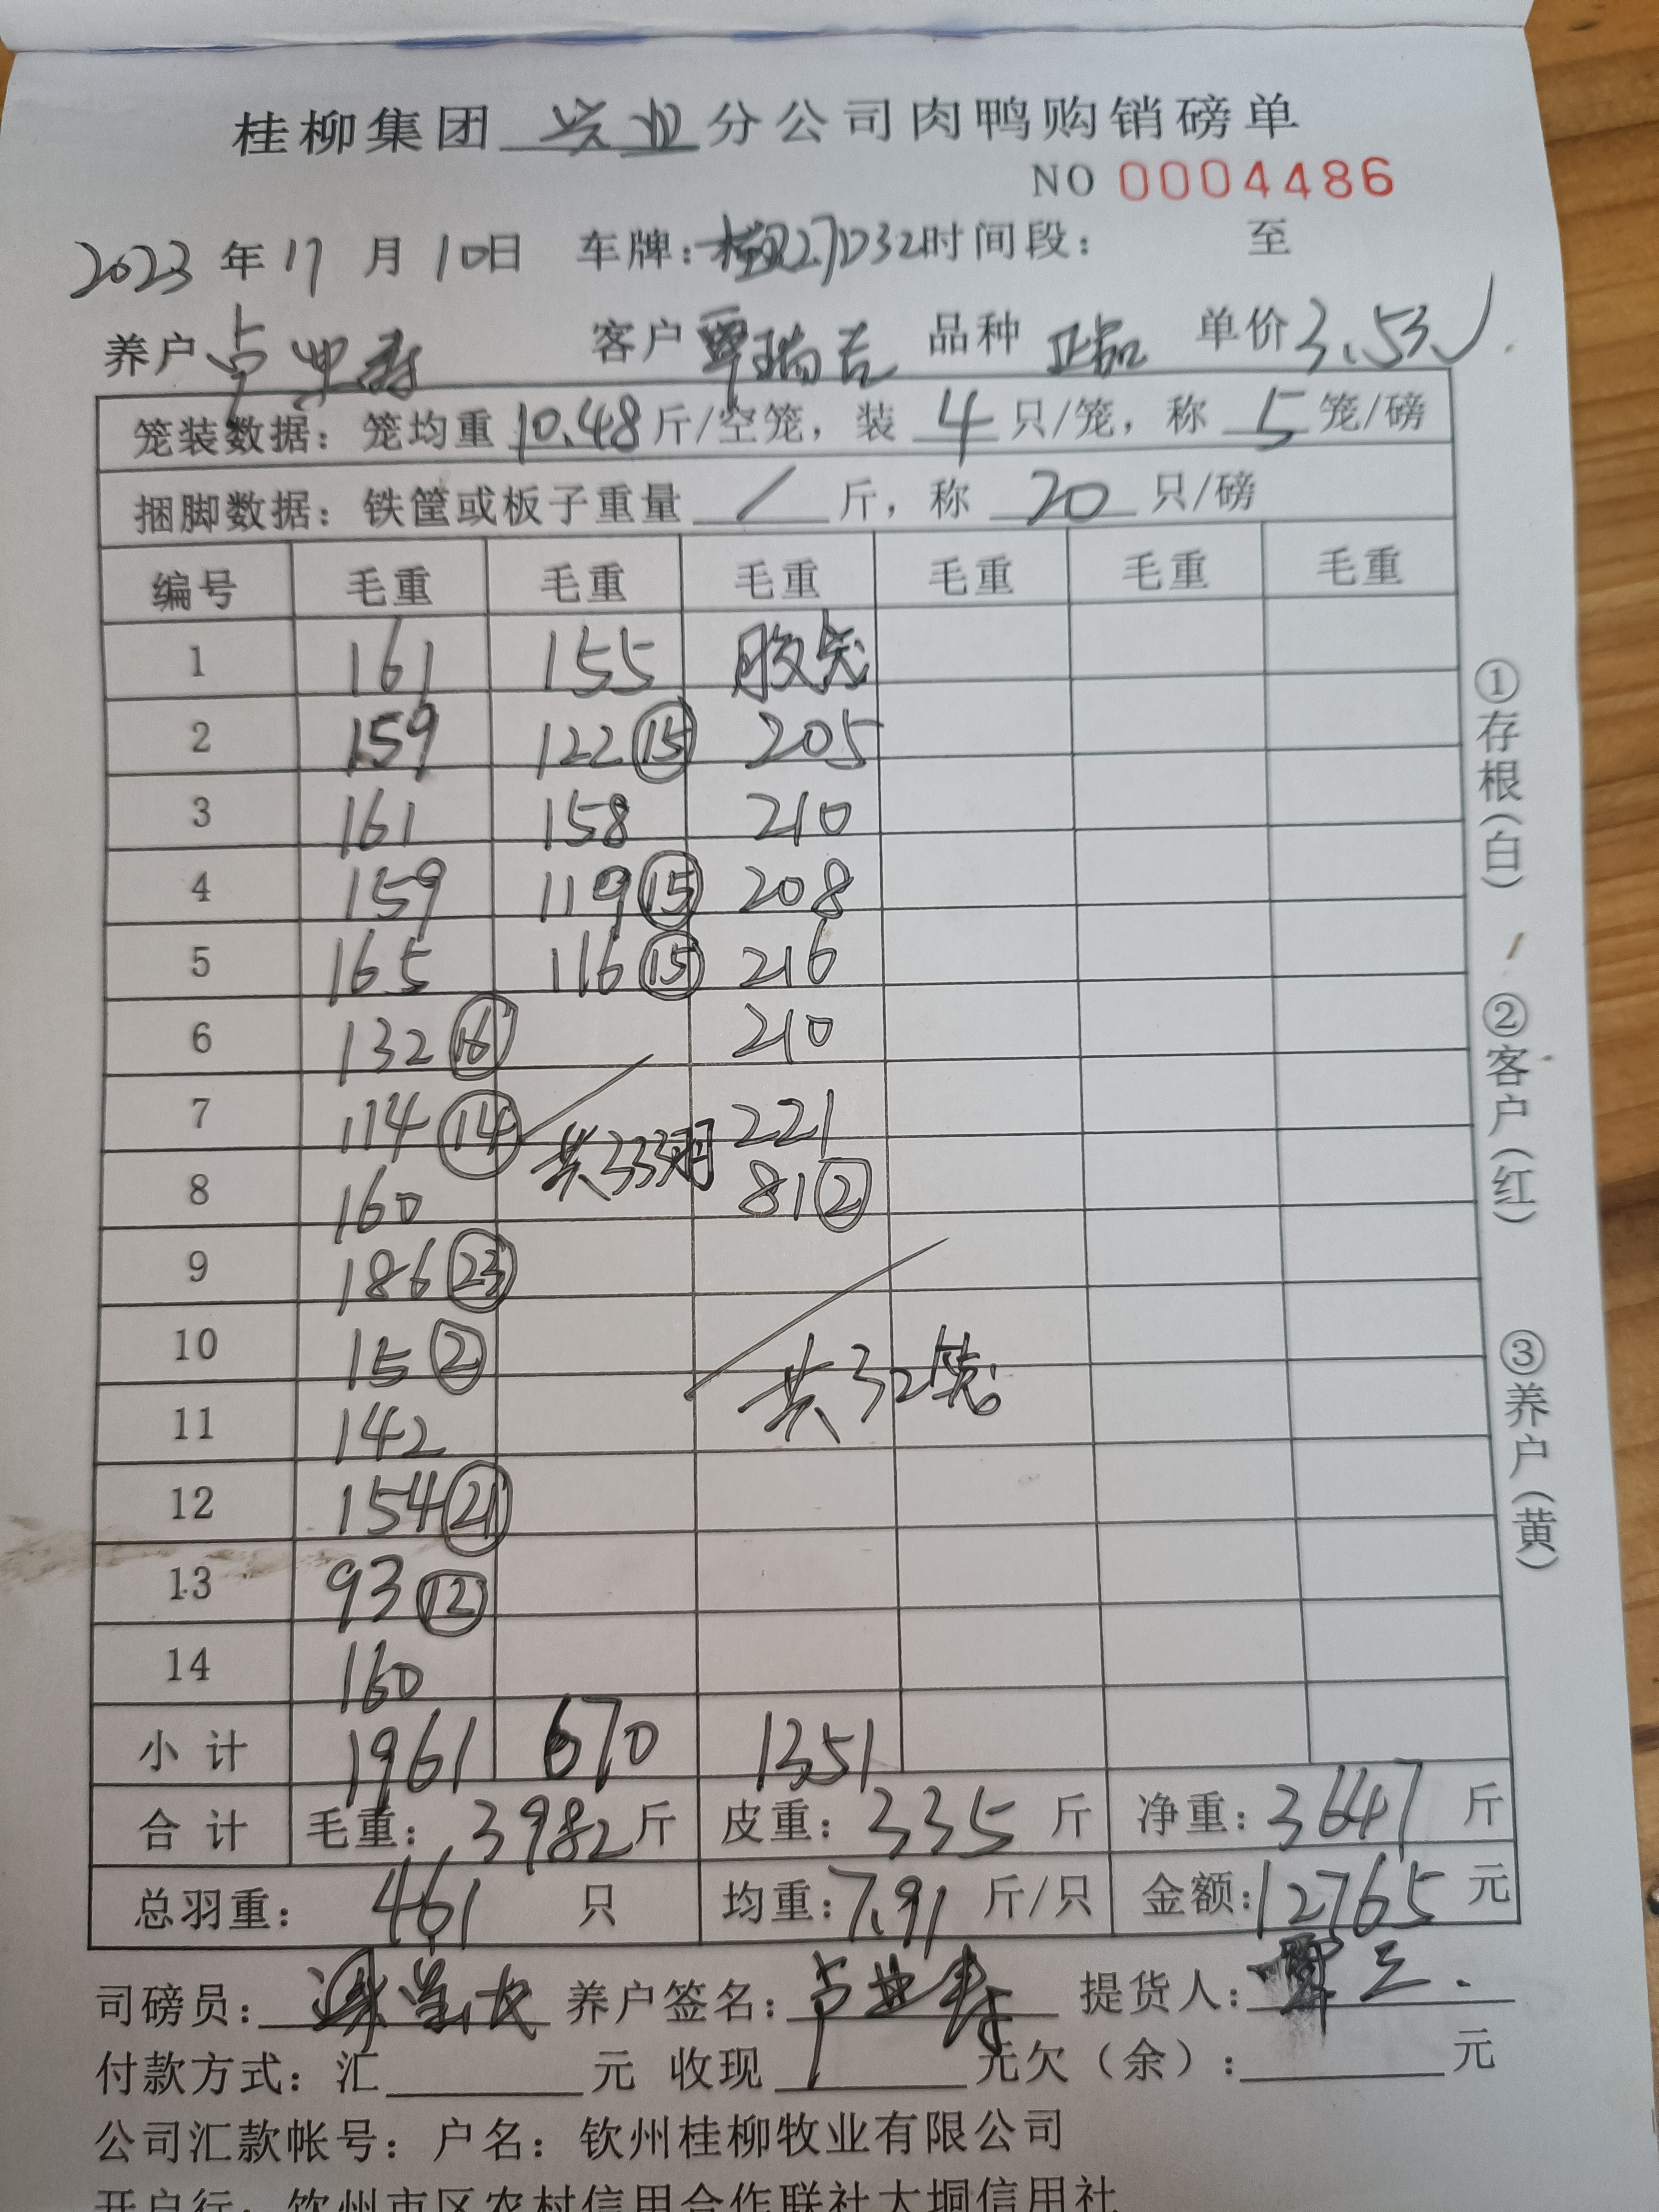 桂柳集团 兴业 分公司肉鸭购销磅单
NO 0004486
2023 年 11 月 10日 车牌: 时间段: 至
养户 卢业寿 客户 覃瑞吉 品种 正品 单价 3.53
笼装数据: 笼均重 10.48 斤/空笼, 装 4 只/笼, 称 5 笼/磅
捆脚数据: 铁筐或板子重量 / 斤, 称 20 只/磅
编号 毛重 毛重 毛重 毛重 毛重 毛重
1 161 155 胶笼
2 159 122 ⑮ 205
3 161 158 210
4 159 119 ⑮ 208
5 165 116 ⑮ 216
6 132 ⑯ 210
7 114 ⑭ 共333羽 221
8 160 81 ②
9 186 ㉓
10 15 ②
11 142 共32笼
12 154 ㉑
13 93 ⑫
14 160
小计 1961 670 1351
合计 毛重: 3982 斤 皮重: 335 斤 净重: 3647 斤
总羽重: 461 只 均重: 7.91 斤/只 金额: 12765 元
司磅员: 养户签名: 卢业寿 提货人: 覃三
付款方式: 汇 元 收现 元欠(余): 元
公司汇款帐号: 户名: 钦州桂柳牧业有限公司
开户行: 钦州市区农村信用合作联社大垌信用社
①存根(白) ②客户(红) ③养户(黄)